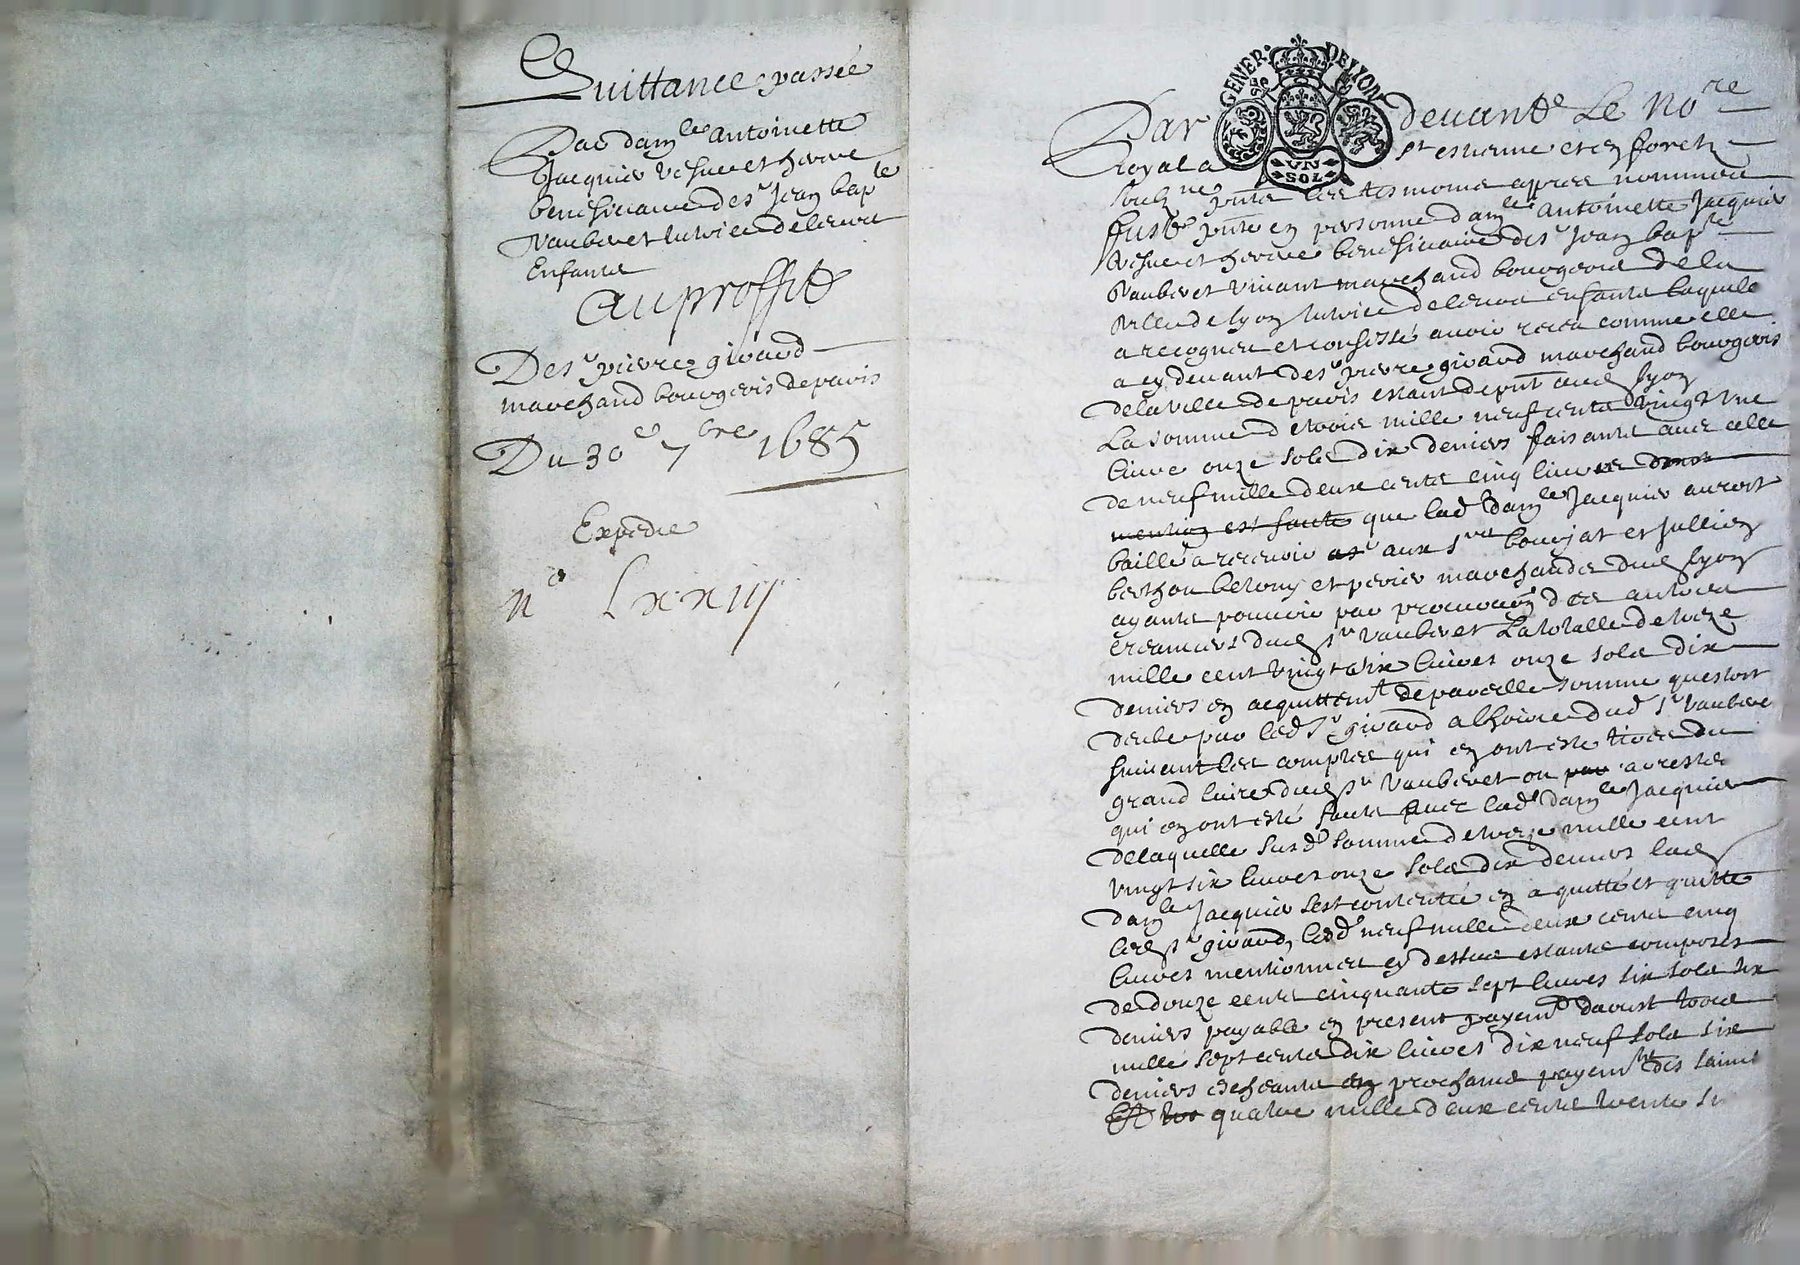 Quittance passée
Par dam.le Antoinette
Jacquier vefve et herre
beneficiaire de s.r Jean bap.te
Vauberet tutrice de leurs
Enfants
Au proffit
De s.r pierre giraud
marchand bourgeois de paris
Du 30e 7bre 1685
Expedie
n.o Lxxiiij
GENER. DE LION
VN SOL
Par devant Le No.re
Royal a St estienne et en forest
soubz.ne pnts les tesmoins apres nommes
fust pnte en personne dam.le Antoinette Jacquier
vefve et herre beneficiaire de s.r Jean bap.te
Vauberet vivant marchand bourgeois de la
ville de lyon tutrice de leurs enfants laquelle
a recogneu et confessé avoir receu comme elle
a cy devant de s.r pierre giraud marchand bourgeois
de la ville de paris estant de pnt aud lyon
La somme de trois mille neuf cents vingt une
livre onze sols dix deniers faisants avec celle
de neuf mille deux cents cinq livres dont
mention est faite que lad dam.le Jacquier auroit
baillé a recevoir aux s.rs bourjat et Jullien
berthon belony et perier marchands dud lyon
ayants pouvoir par procuraon des autres
creanciers dud s.r Vauberet La totalle de treze
mille cent vingt six livres onze sols dix
deniers en acquittem.t de pareille somme questoit
deube par led s.r giraud a lhoirie dud s.r Vauberet
suivant les comptes qui en ont esté tirés du
grand livre dud s.r Vauberet ou par arrestés
qui en ont esté faits avec lad dam.le Jacquier
de laquelle susd somme de treze mille cent
vingt six livres onze sols dix deniers lad
dam.le Jacquier sest contentée en a quitté et quitte
led s.r giraud, lesd neuf mille deux cents cinq
livres mentionnées cy dessus estants composés
de douze cents cinquante sept livres six sols six
deniers payable en present payem.t daoust trois
mille sept cents dix livres dix neuf sols six
deniers escheants en prochains payem.ts des saints
Et quatre mille deux cents trente